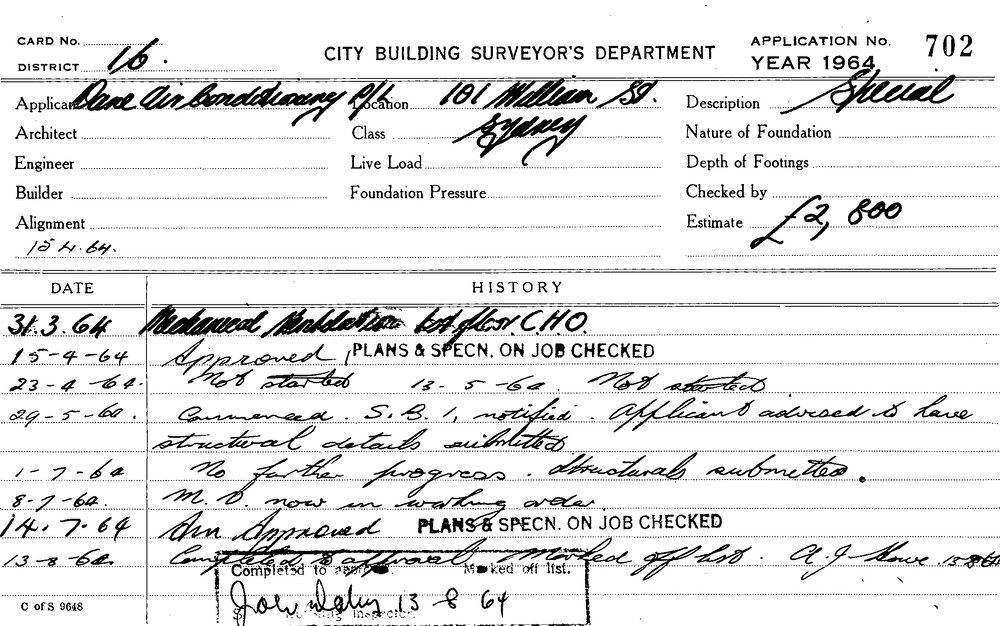 CARD No.
DISTRICT 16.
CITY BUILDING SURVEYOR'S DEPARTMENT
APPLICATION No. 702
YEAR 1964
Applicant Dane Air Conditioning P/L Location 101 William St. Description Special
Architect Class Sydney Nature of Foundation
Engineer Live Load Depth of Footings
Builder Foundation Pressure Checked by
Alignment Estimate £2,800
15 4.64.
DATE HISTORY
31.3.64 Mechanical Ventilation floor C.H.O.
15-4-64 Approved PLANS & SPECN. ON JOB CHECKED
23-4-64. Not started 13-5-64. Not started
29-5-64. Commenced. S.B.I. notified. Applicant advised to have
structural details submitted
1-7-64 No further progress. Structurals submitted.
8-7-64. M.V. now in working order.
14.7.64 Am Approved PLANS & SPECN. ON JOB CHECKED
13-8-64. Completed to approval. Marked off list. A. J. 13-8-64
Completed to Marked off list.
13-8 64
C of S 9648